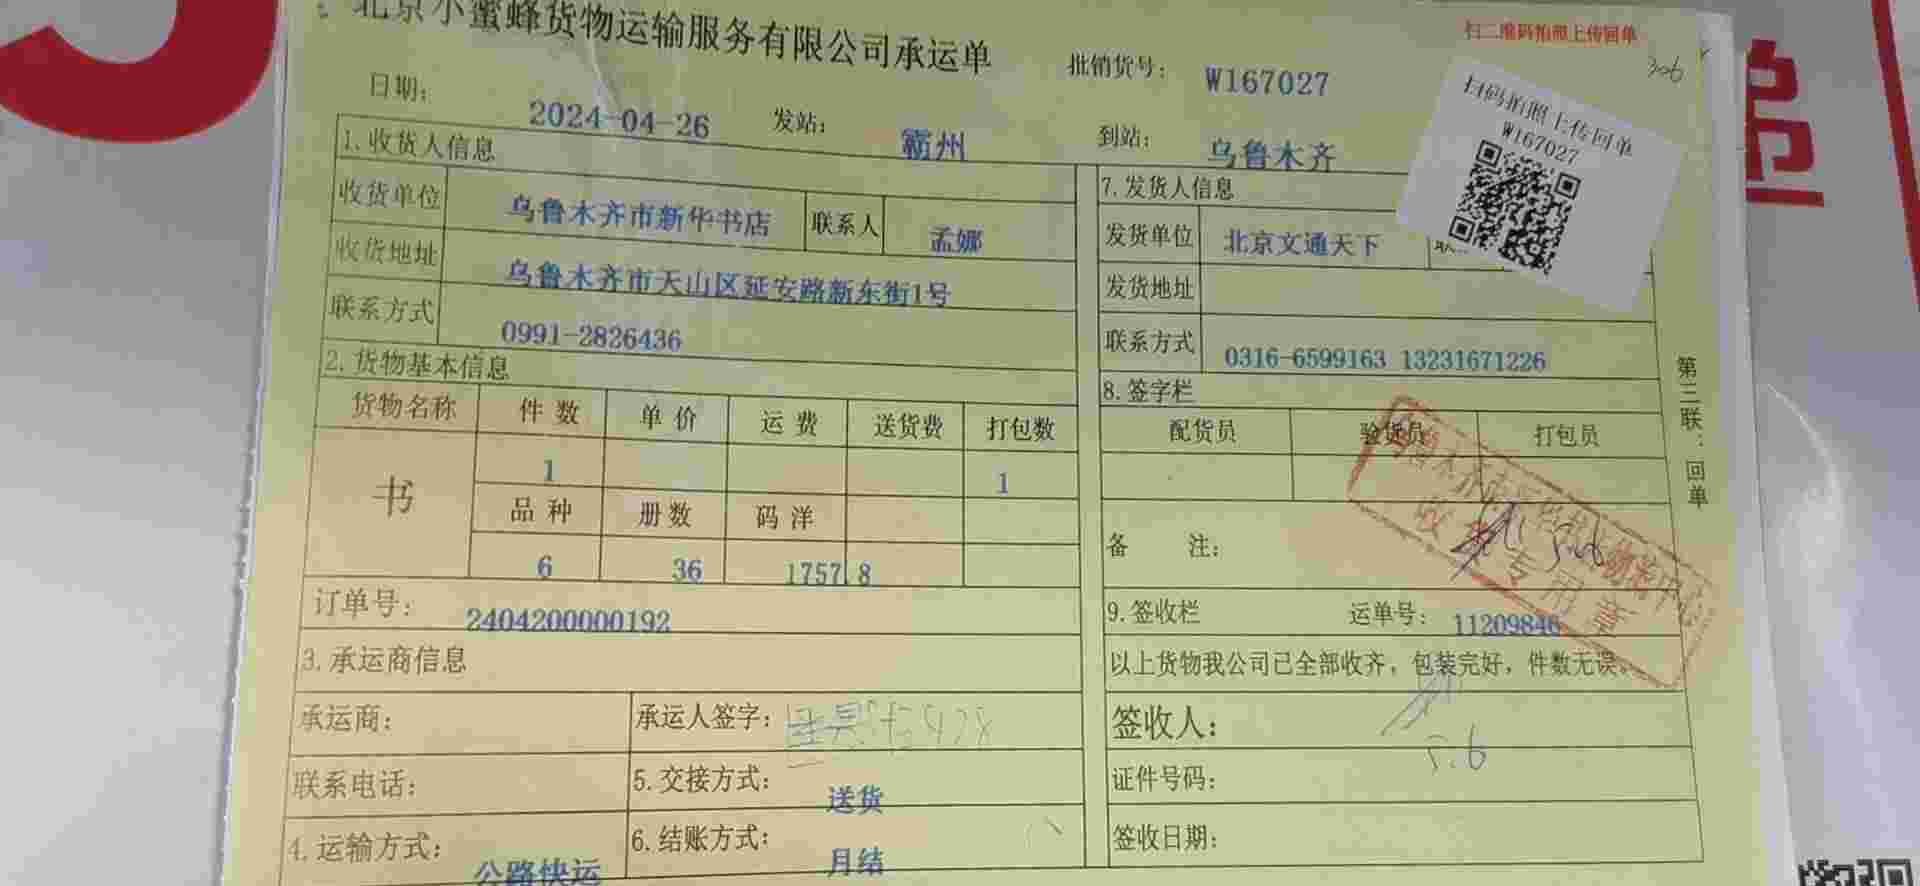 北京小蜜蜂货物运输服务有限公司承运单
扫二维码拍照上传回单
306
批销货号: W167027
日期: 2024-04-26 发站: 霸州 到站: 乌鲁木齐
扫码拍照上传回单
W167027
1.收货人信息
收货单位 乌鲁木齐市新华书店 联系人 孟娜
收货地址 乌鲁木齐市天山区延安路新东街1号
联系方式 0991-2826436
7.发货人信息
发货单位 北京文通天下
发货地址
联系方式 0316-6599163 13231671226
2.货物基本信息
货物名称 件数 单价 运费 送货费 打包数
书 1 1
品种 册数 码洋
6 36 1757.8
订单号: 2404200000192
8.签字栏
配货员 验货员 打包员
备 注:
收货专用章
第三联:回单
9.签收栏 运单号: 11209846
以上货物我公司已全部收齐,包装完好,件数无误。
3.承运商信息
承运商: 承运人签字:
联系电话: 5.交接方式: 送货
4.运输方式: 公路快运 6.结账方式: 月结
签收人:
5.6
证件号码:
签收日期: